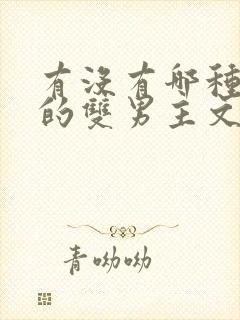 有沒有哪種
的雙男主文
青呦呦